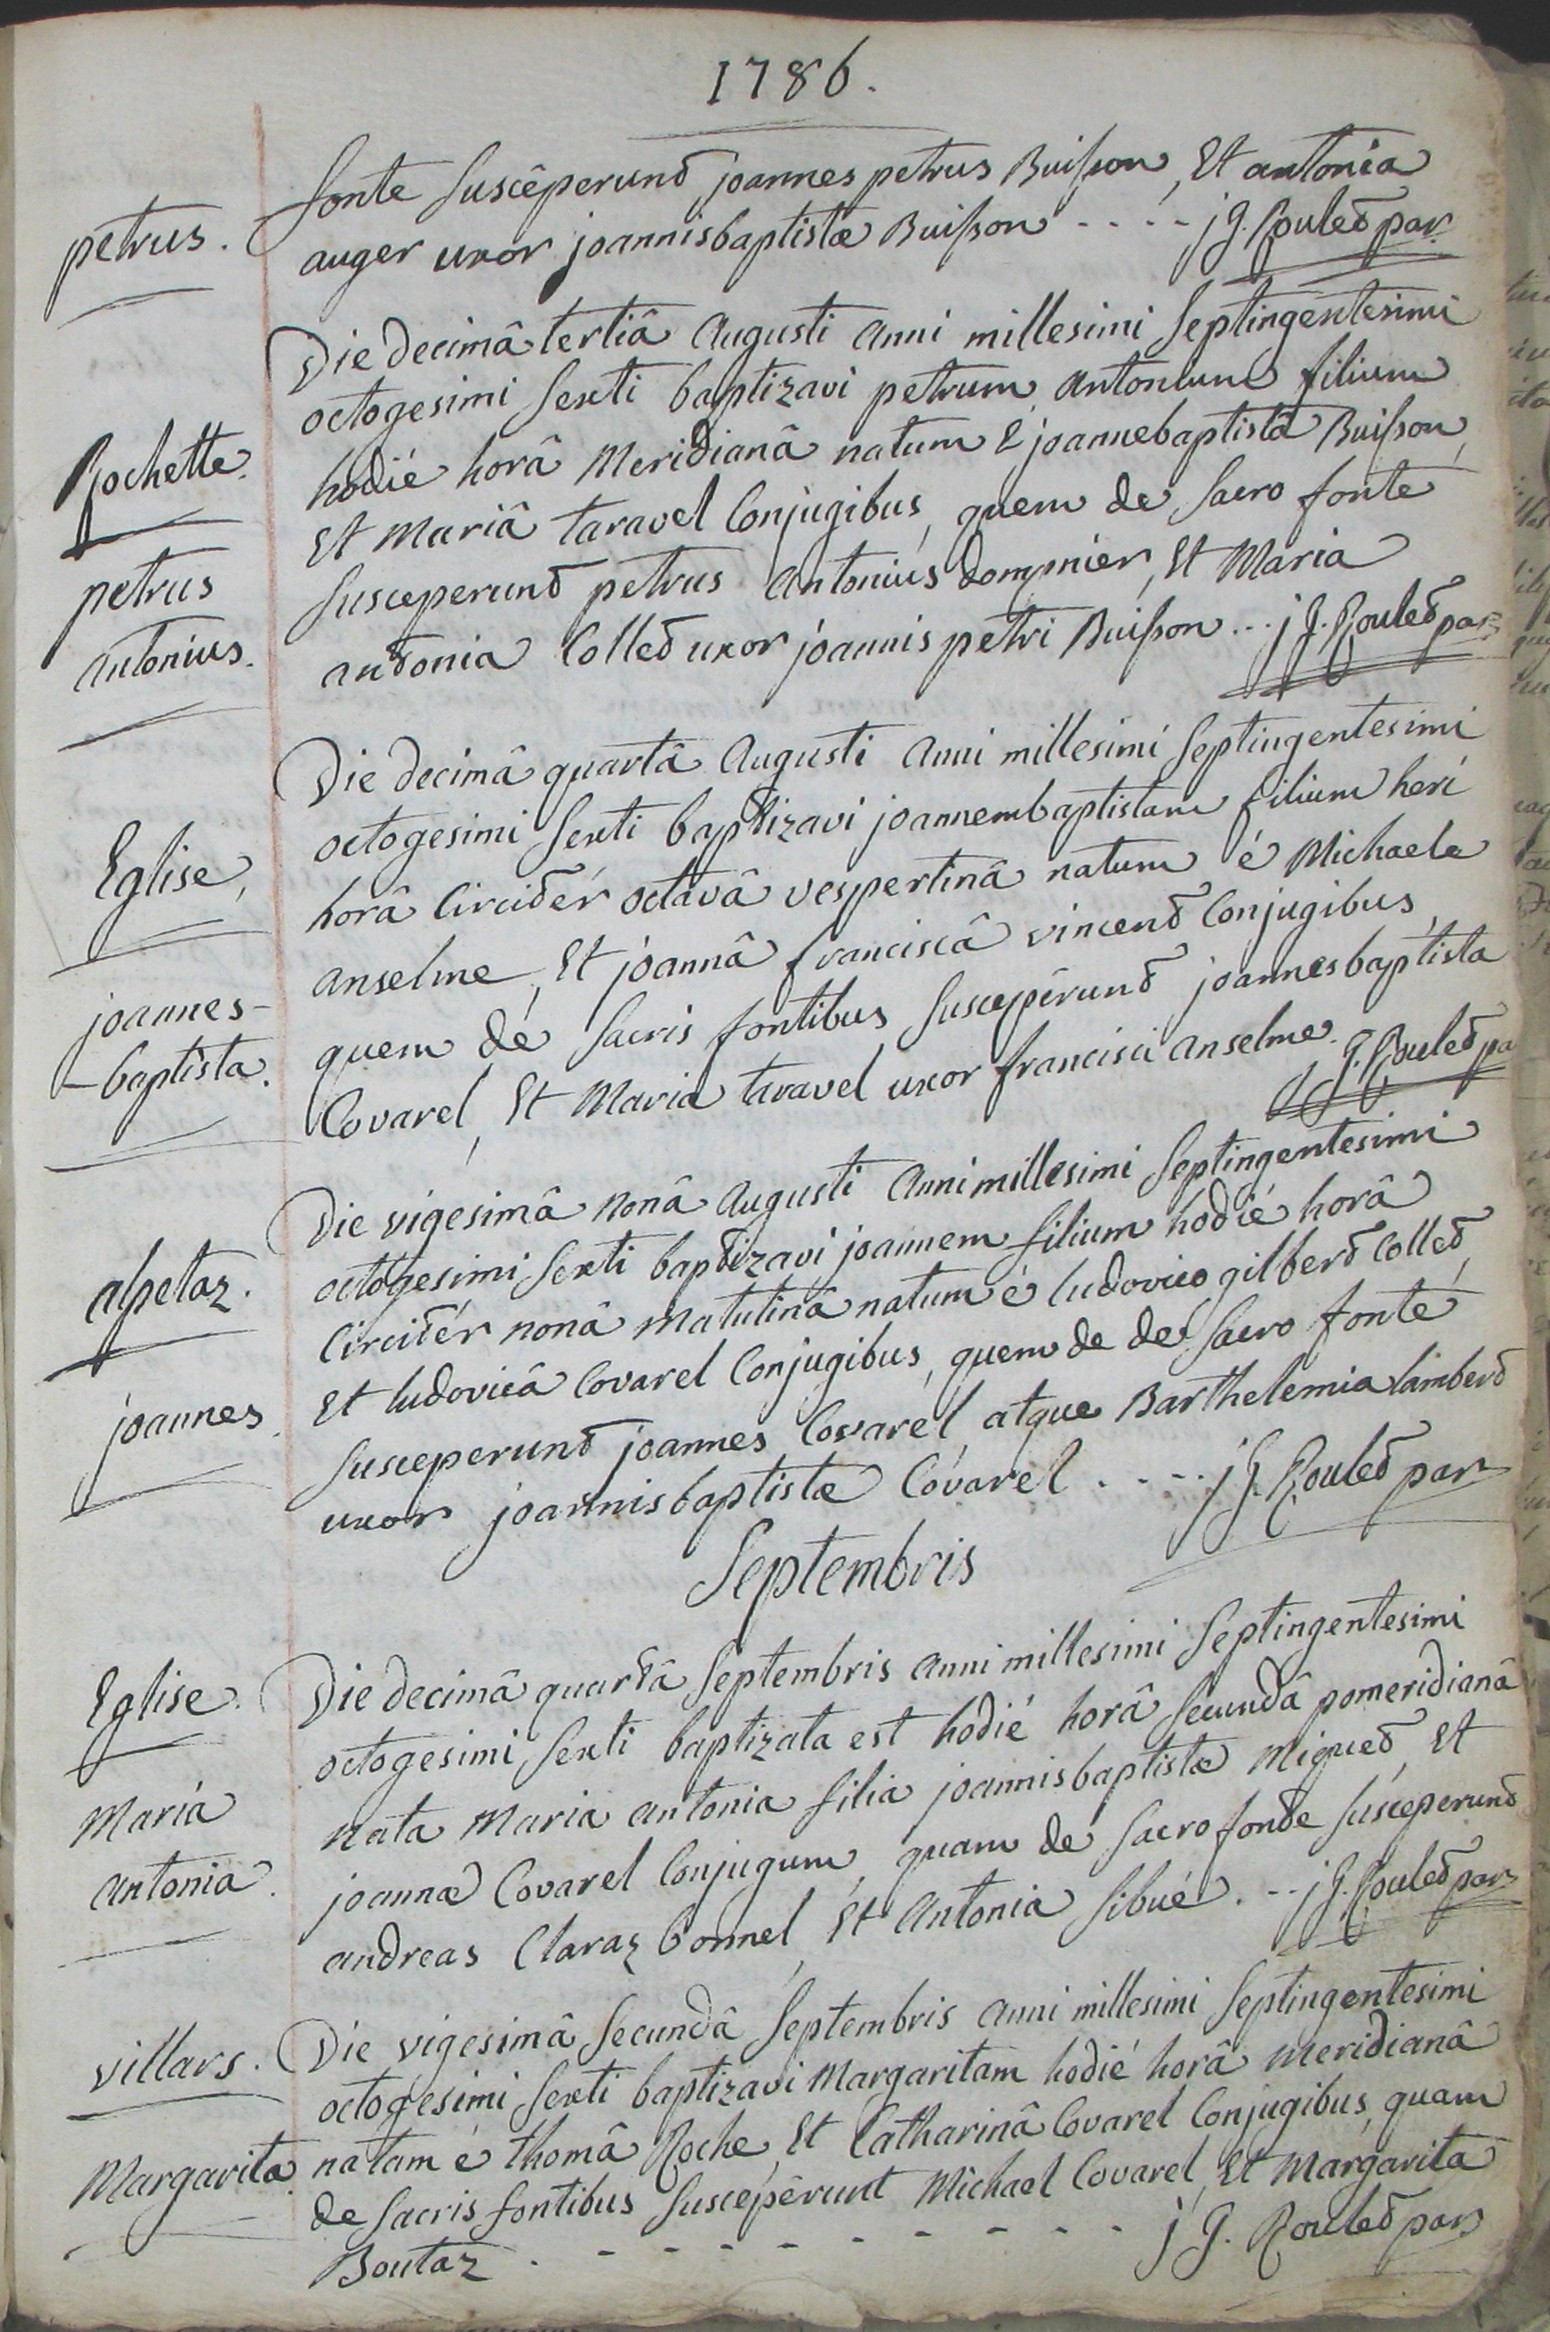 1786.
petrus.
fonte suscêperunt joannes petrus Buisson, Et antonia
auger uxor joannisbaptistæ Buisson - - - - j G. Roulet par.
Rochette.
petrus
antonius.
Die decimâ tertiâ Augusti anni millesimi septingentesimi
octogesimi sexti baptizavi petrum antonium filium
hodié horâ meridianâ natum é joannebaptistâ Buisson,
Et mariâ taravel Conjugibus, quem de sacro fonte
susceperunt petrus antonius dompnier, Et Maria
antonia Collet uxor joannis petri Buisson... j G. Roulet par
Eglise,
joannes-
-baptista.
Die decimâ quartâ Augusti anni millesimi septingentesimi
octogesimi sexti baptizavi joannembaptistam filium heri
horâ Circitér octavâ vespertinâ natum é Michaele
anselme, Et joannâ franciscâ vincent Conjugibus,
quem de sacris fontibus suscepêrunt joannesbaptista
Covarel, Et Maria taravel uxor francisci anselme. j G. Roulet pa
alpetaz.
joannes.
Die vigesimâ nonâ Augusti anni millesimi septingentesimi
octogesimi sexti baptizavi joannem filium hodié horâ
Circitér nonâ matutinâ natum é ludovico gilbert Collet,
Et ludovicâ Covarel Conjugibus, quem de de sacro fonte
susceperunt joannes Covarel, atque Barthelemia lambert
uxor joannisbaptistæ Covarel . - - - . j G. Roulet par
Septembris
Eglise.
Maria
antonia.
Die decimâ quartâ Septembris anni millesimi septingentesimi
octogesimi sexti baptizata est hodié horâ secundâ pomeridianâ
nata Maria antonia filia joannisbaptistæ Miquet, Et
joannæ Covarel Conjugum, quam de sacro fonte susceperunt
andreas Claraz bonnel, Et Antonia sibué. - - j G. Roulet par
villars.
Margarita.
Die vigesimâ secundâ Septembris anni millesimi septingentesimi
octogesimi sexti baptizavi Margaritam hodié horâ meridianâ
natam é thomâ Roche, Et Catharinâ Covarel Conjugibus, quam
de sacris fontibus suscepêrunt Michael Covarel, Et Margarita
Boutaz . - - - - - - - - - j G. Roulet par